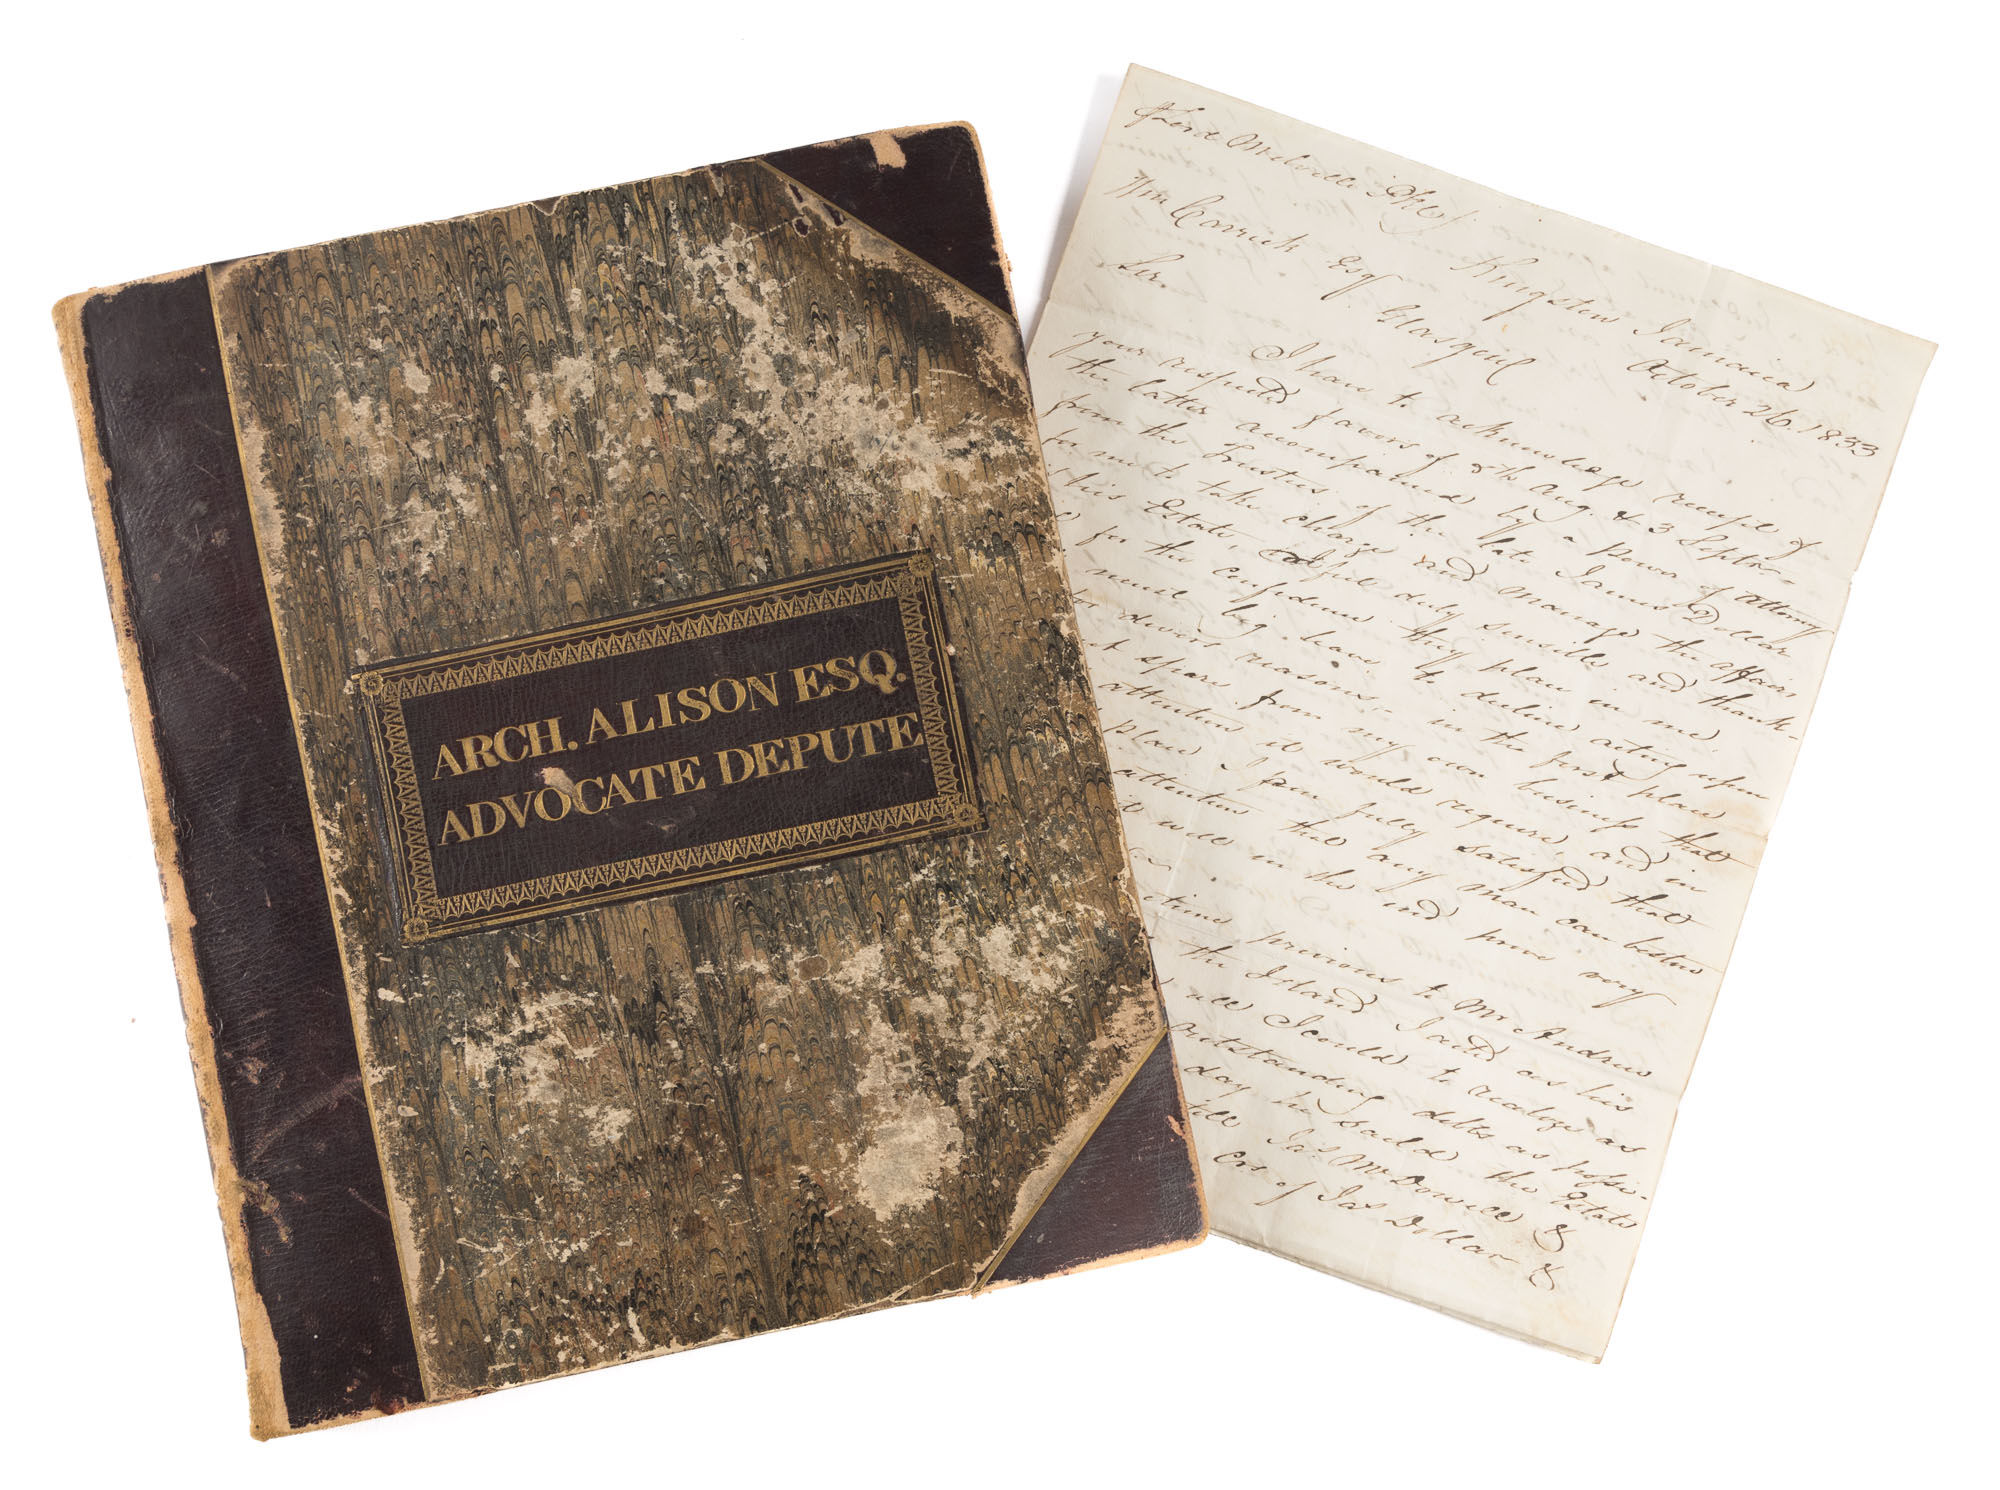 ARCH. ALISON ESQ.
ADVOCATE DEPUTE
Lord Melville Pkt
Kingston Jamaica
October 26. 1833
Wm Carrick Esqr Glasgow
Sir.
I have to acknowledge receipt of
your respected favors of 8th Aug & 3 Septr
the latter accompanied by a Power of Attorney
from the Trustees of the late James Dollar
for me to take charge and manage the affairs
of his Estate, I feel duly sensible and thank
for the confidence they place in me,
beg leave to decline acting upon
divers reasons, in the first place
spare from my own business that
attention it would require, and in
place I am fully satisfied that
attention that any man can bestow
will in the end prove very
time previous to Mr Andrew
the Island I acted as his
all I could to realize as
outstanding debts as possi-
day he said the Estate
Jas McDowell &
Exr of Jas Dollar &